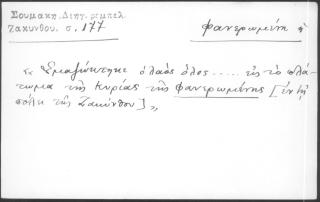 Σουμακη, Διηγ. ρεμπελ.
Ζακυνθου. σ. 177
φανερωμένη ἡ
« Ἐμαζώχτηκε ὁ λαὸς ὅλος ..... εἰς τὸ πλά-
τωμα τῆς Κυρίας τῆς φανερωμένης [ἐν τῇ
πόλει τῆς Ζακύνθου] »